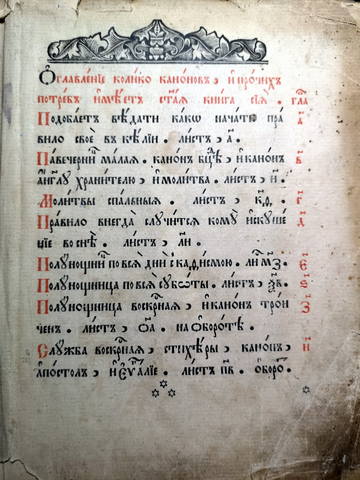 Ѡглавленїе колико каноновъ, и прочихъ
потребъ имѣетъ ст҃ая книга сїя. гл҃а
Подобаетъ вѣдати како начати пра а҃
вило своѐ въ келїи. листъ, а҃.
Павечерни малая. канон бц҃ѣ, и канонъ в҃
англ҃у хранителю, и молитва. листъ, и҃.
Молитвы спалныя. листъ, к҃д. г҃
Правило внегда случится кому искуше д҃
цїе во снѣ. листъ, л҃и.
Полунощни по вся дни с кафисмою. ли м҃з. е҃
Полунощница по вся суботы. листъ, ѯ҃в. ѕ҃
Полунощница воскр҃ная, и канон трои з҃
чен. листъ, о҃а. на оборотѣ.
Служба воскр҃ная, стихѣры, канонъ, и҃
апостолъ, и еѵ҃алїе. листъ п҃в. оборо.